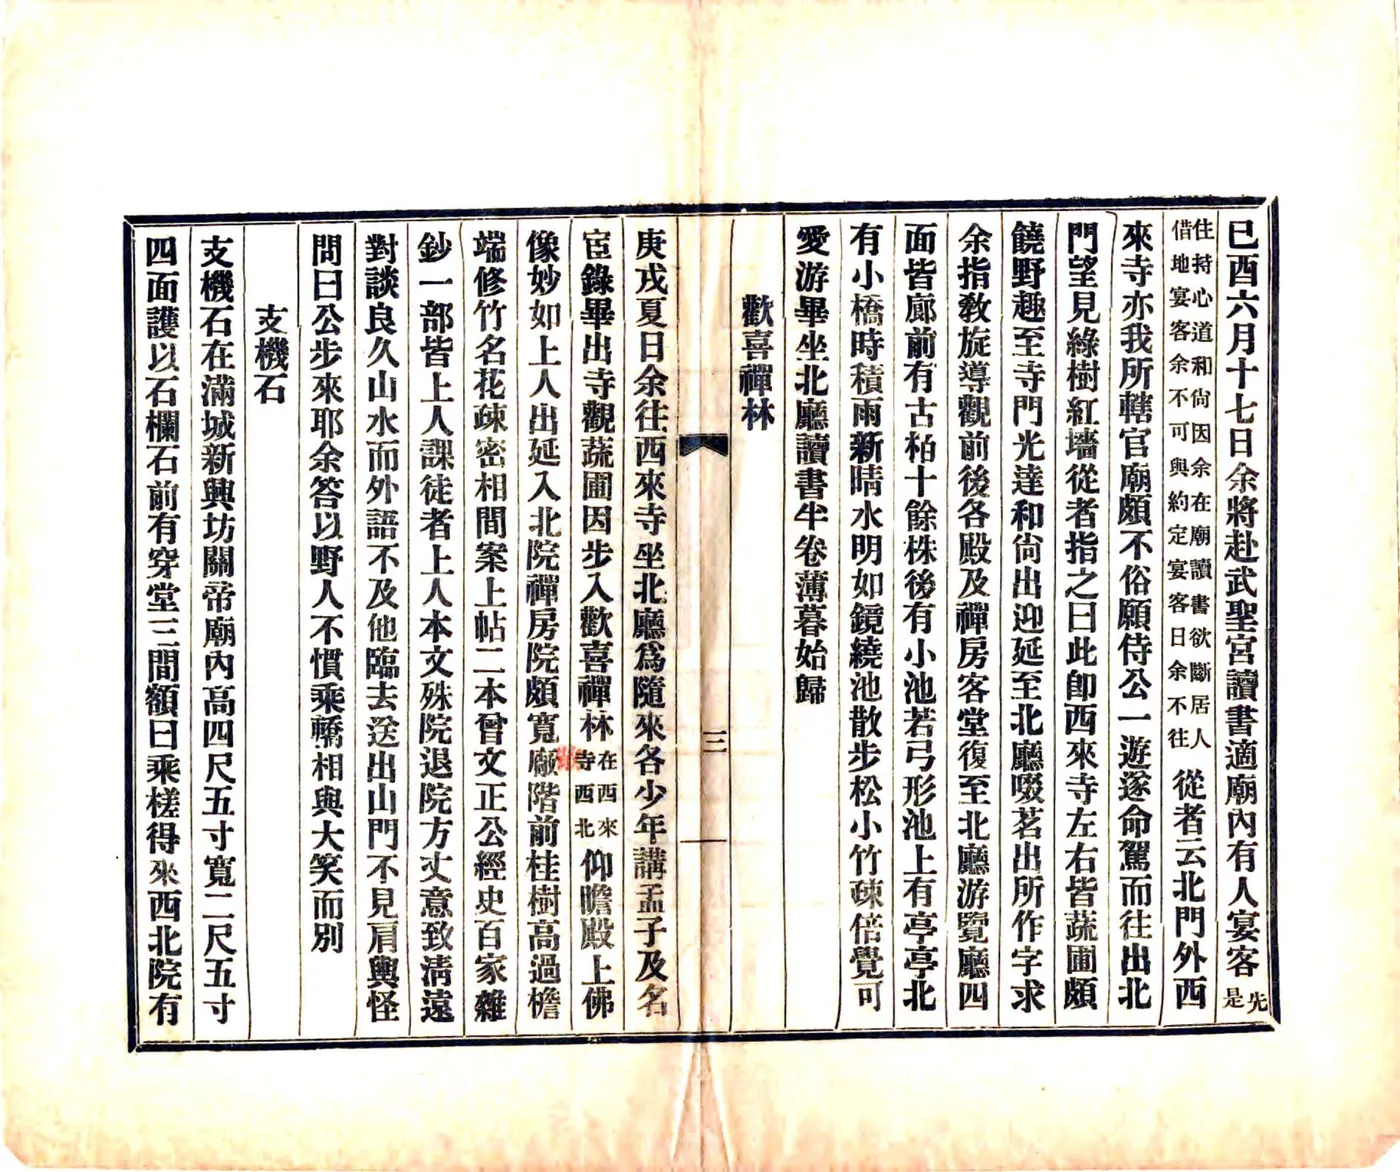 已酉六月十七日余將赴武聖宮讀書適廟內有人宴客先是
住持心道和尙因余在廟讀書欲斷居人
借地宴客余不可與約定宴客日余不往
從者云北門外西
來寺亦我所轄官廟頗不俗願侍公一遊遂命駕而往出北
門望見綠樹紅墻從者指之曰此卽西來寺左右皆蔬圃頗
饒野趣至寺門光達和尙出迎延至北廳啜茗出所作字求
余指敎旋導觀前後各殿及禪房客堂復至北廳游覽廳四
面皆廊前有古柏十餘株後有小池若弓形池上有亭亭北
有小橋時積雨新晴水明如鏡繞池散步松小竹疎倍覺可
愛游畢坐北廳讀書半卷薄暮始歸
歡喜禪林
三
庚戌夏日余往西來寺坐北廳爲隨來各少年講孟子及名
宦錄畢出寺觀蔬圃因步入歡喜禪林在西來寺西北仰瞻殿上佛
像妙如上人出延入北院禪房院頗寬廠階前桂樹高過檐
端修竹名花疎密相間案上帖二本曾文正公經史百家雜
鈔一部皆上人課徒者上人本文殊院退院方丈意致淸遠
對談良久山水而外語不及他臨去送出山門不見肩輿怪
問曰公步來耶余答以野人不慣乘轎相與大笑而別
支機石
支機石在滿城新興坊關帝廟內高四尺五寸寬二尺五寸
四面護以石欄石前有穿堂三間額曰乘槎得來西北院有